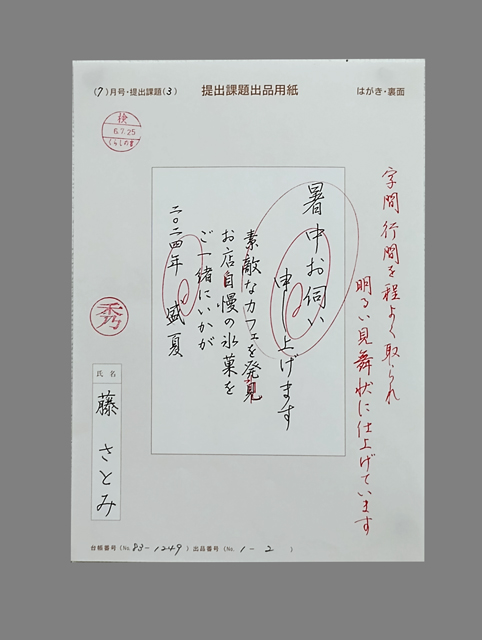 (7)月号・提出課題(3)
提出課題出品用紙
はがき・裏面
検
6.7.25
くらしの書
字間行間を程よく取られ
明るい見舞状に仕上げています
暑中お伺い
申し上げます
素敵なカフェを発見
お店自慢の氷菓を
ご一緒にいかが
二〇二四年 盛夏
秀
氏名
藤 さとみ
台帳番号(No. 83-1249) 出品番号(No. 1-2 )